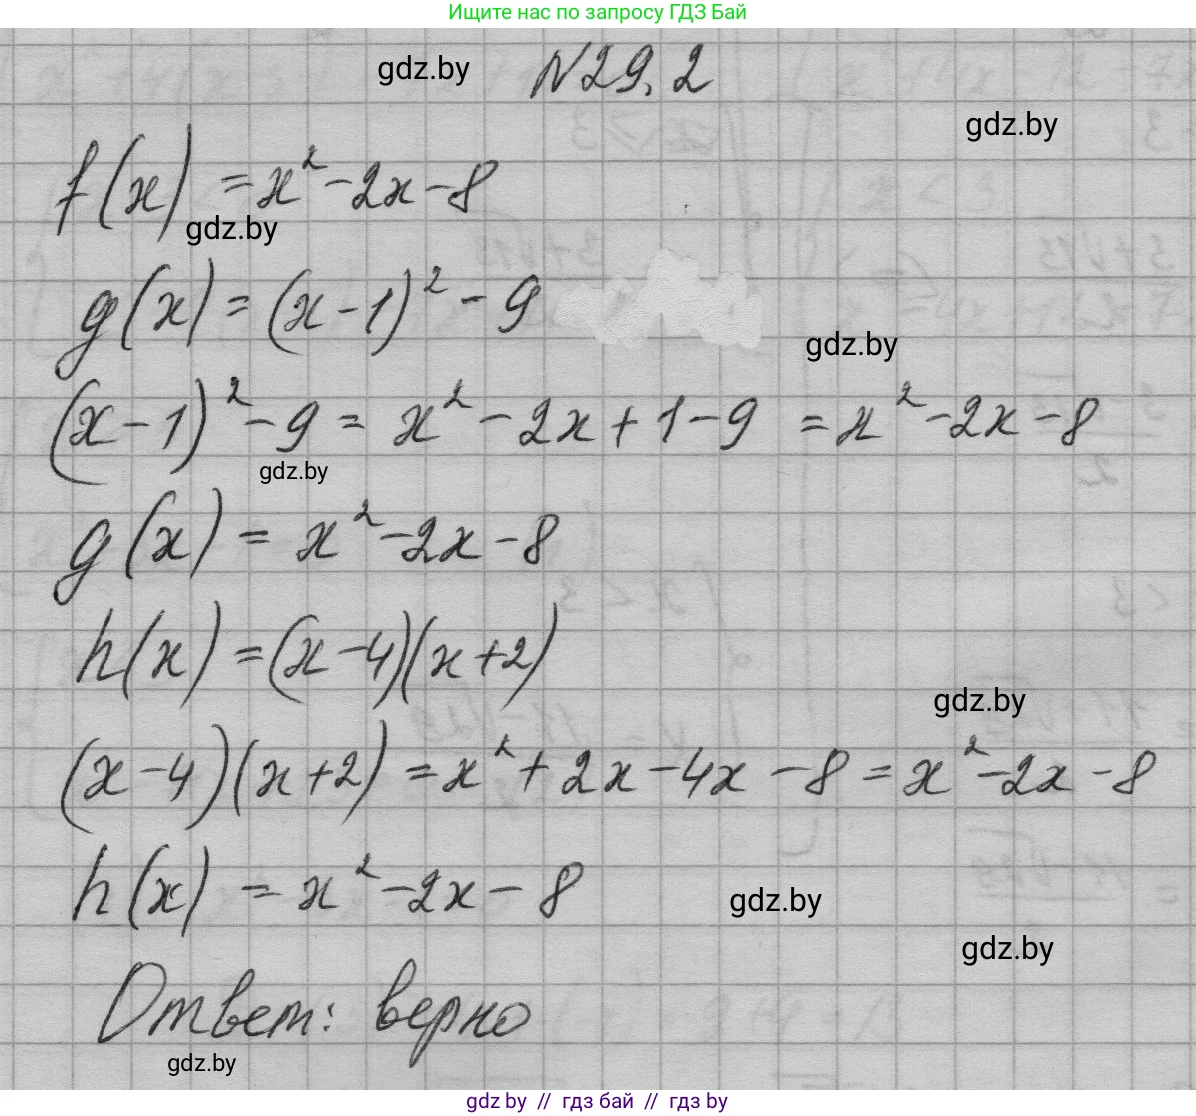 Ищите нас по запросу ГДЗ Бай
gdz.by N29.2
gdz.by
f(x) = x² - 2x - 8
gdz.by
g(x) = (x - 1)² - 9
gdz.by
(x - 1)² - 9 = x² - 2x + 1 - 9 = x² - 2x - 8
gdz.by
g(x) = x² - 2x - 8
h(x) = (x - 4)(x + 2)
gdz.by
(x - 4)(x + 2) = x² + 2x - 4x - 8 = x² - 2x - 8
h(x) = x² - 2x - 8
gdz.by
gdz.by
Ответ: верно
gdz.by
gdz.by // гдз бай // гдз by